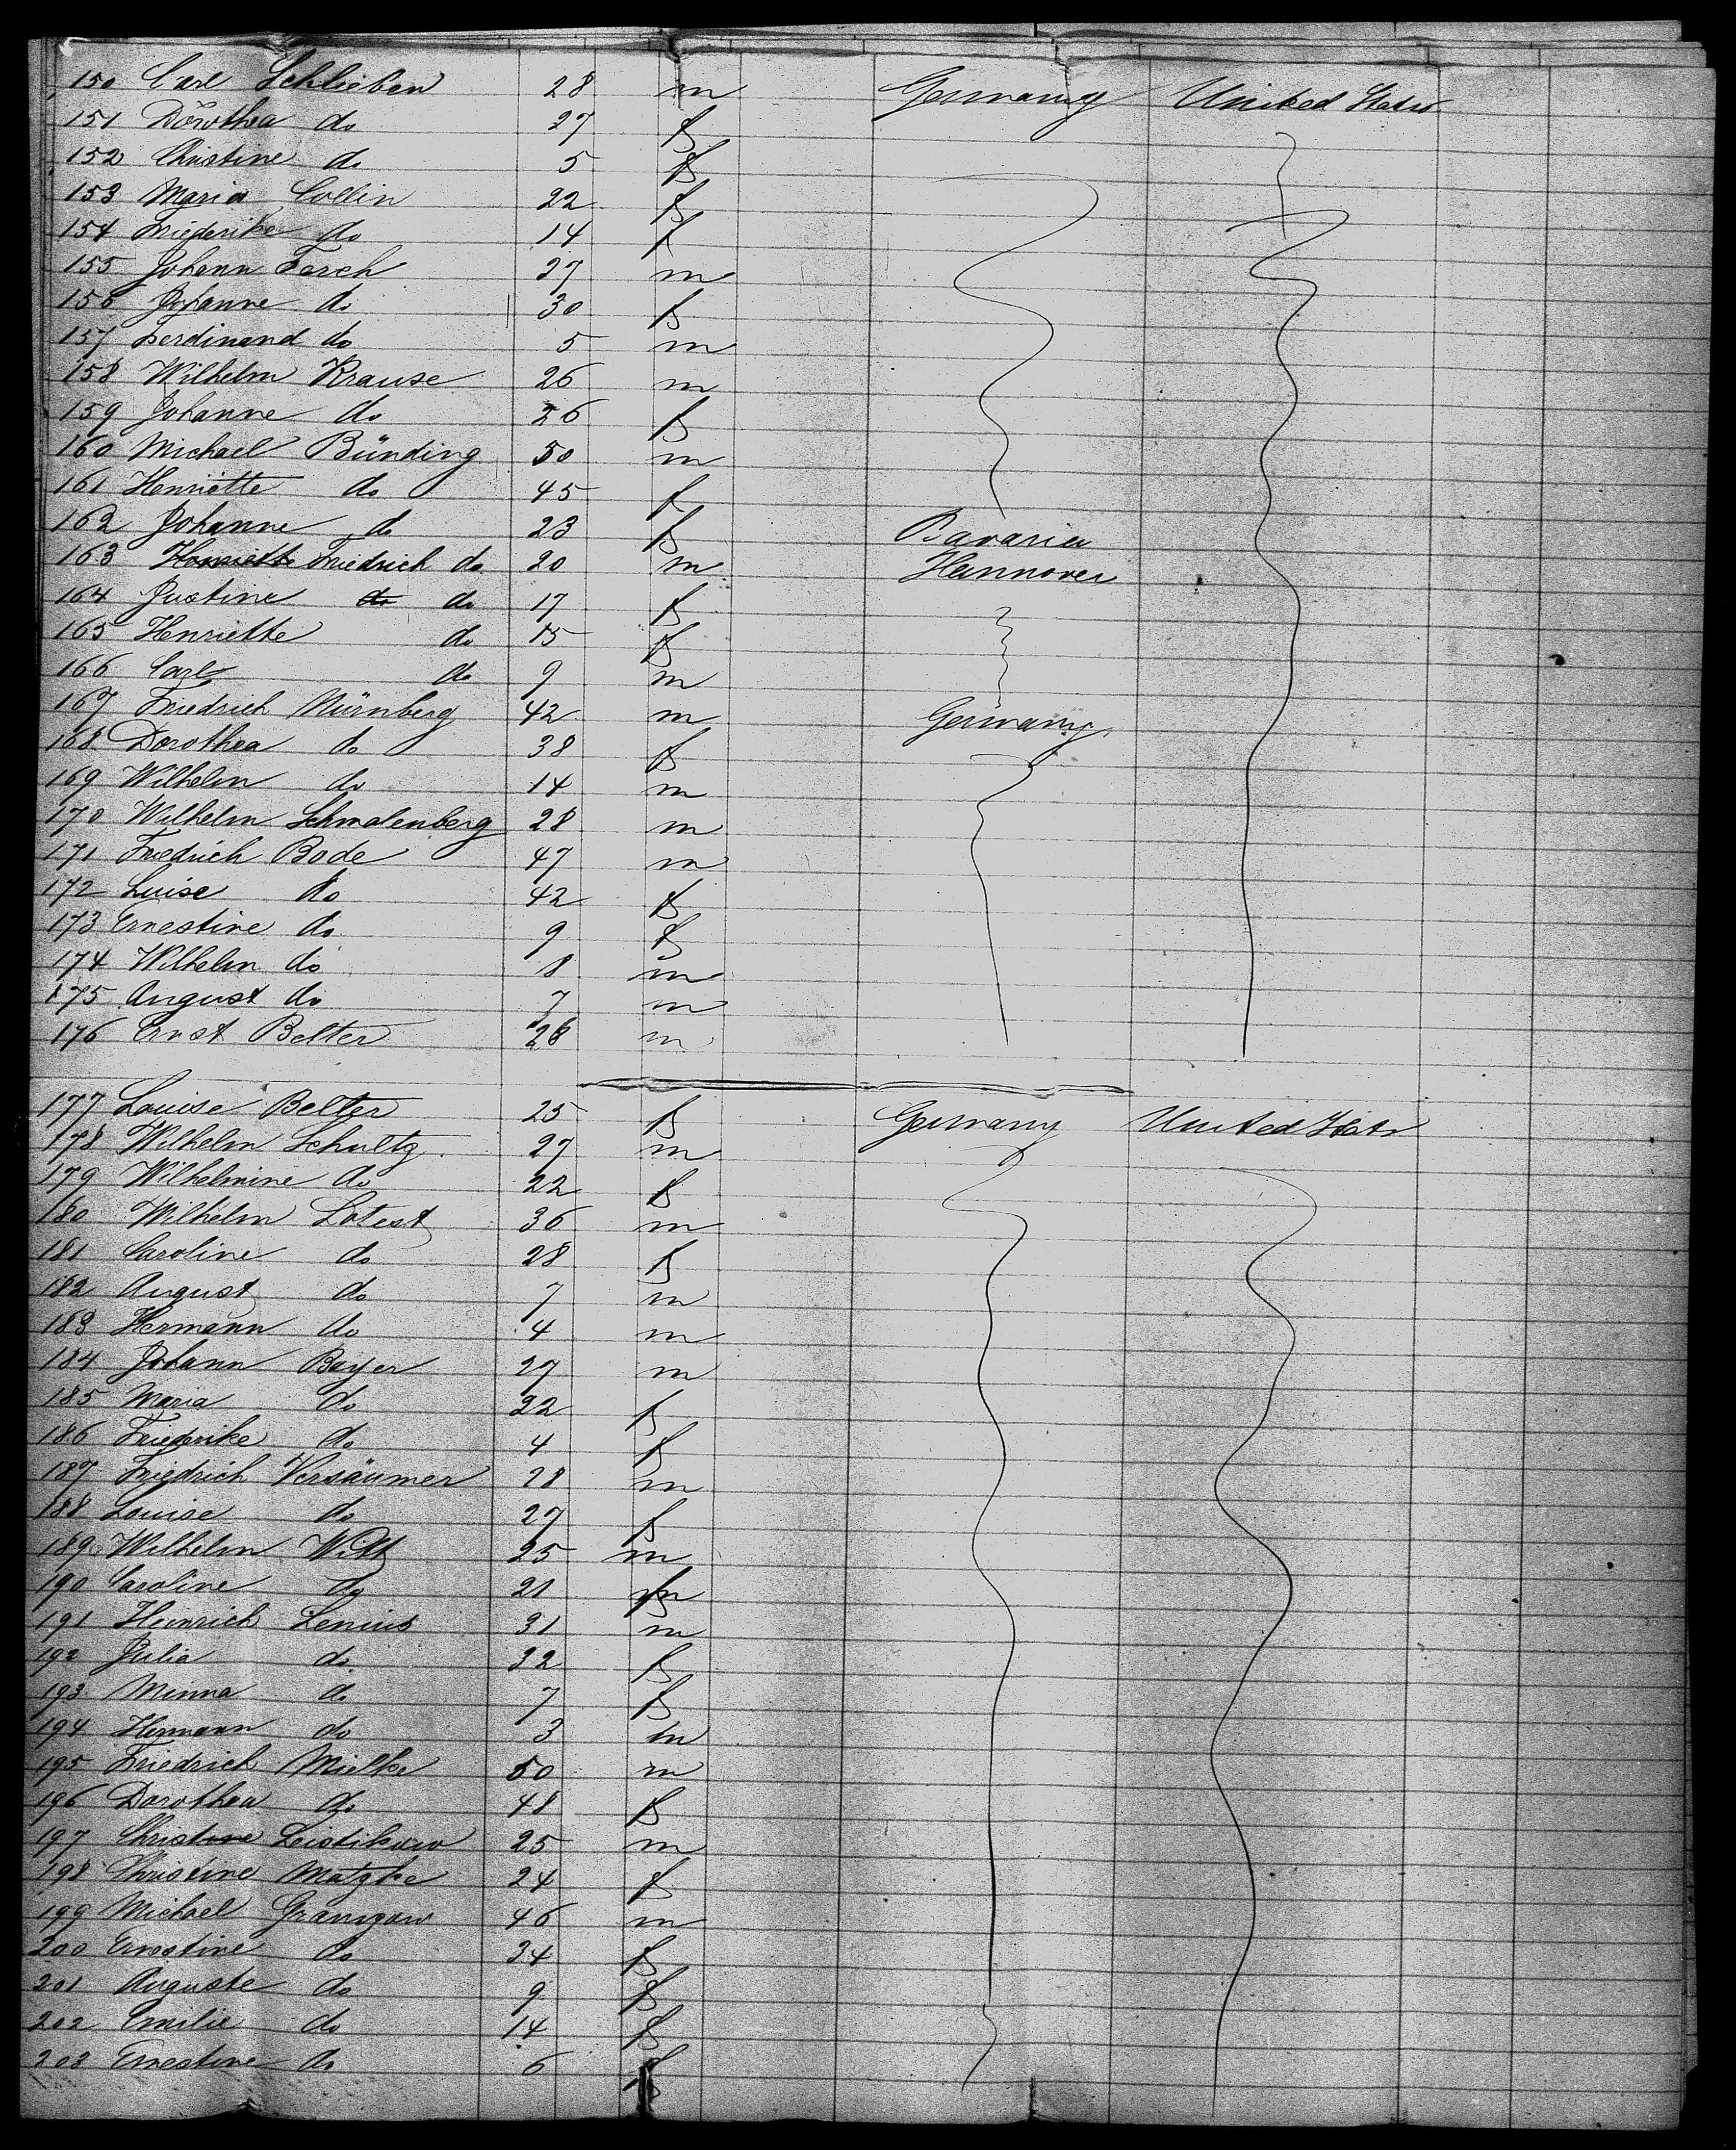 150 Carl Schlieben 28 m Germany United States
151 Dorothea do 27 f
152 Christine do 5 f
153 Maria Collin 22 f
154 Friederike do 14 f
155 Johann Torch 27 m
156 Johanne do 30 f
157 Ferdinand do 5 m
158 Wilhelm Krause 26 m
159 Johanne do 26 f
160 Michael Bünding 50 m
161 Henriette do 45 f
162 Johanne do 23 f Bavaria
163 Henriette Friedrich do 20 m Hannover
164 Justine do do 17 f
165 Henriette do 15 f
166 Carl do 9 m
167 Friedrich Nürnberg 42 m Germany
168 Dorothea do 38 f
169 Wilhelm do 14 m
170 Wilhelm Schmalenberg 28 m
171 Friedrich Bode 47 m
172 Luise do 42 f
173 Ernestine do 9 f
174 Wilhelm do 8 m
175 August do 7 m
176 Ernst Belter 26 m
177 Louise Belter 25 f Germany United Stats
178 Wilhelm Schultz 27 m
179 Wilhelmine do 22 f
180 Wilhelm Lotest 36 m
181 Caroline do 28 f
182 August do 7 m
183 Hermann do 4 m
184 Johann Bayer 27 m
185 Maria do 22 f
186 Friederike do 4 f
187 Friedrich Versäumer 28 m
188 Louise do 27 f
189 Wilhelm Witt 25 m
190 Caroline do 21 f
191 Heinrich Lenius 31 m
192 Julia do 32 f
193 Minna do 7 f
194 Hermann do 3 m
195 Friedrich Mielke 50 m
196 Dorothea do 48 f
197 Christine Leistikow 25 m
198 Christine Matzke 24 f
199 Michael Gramzow 46 m
200 Ernestine do 34 f
201 Auguste do 9 f
202 Emilie do 14 f
203 Ernestine do 6 f